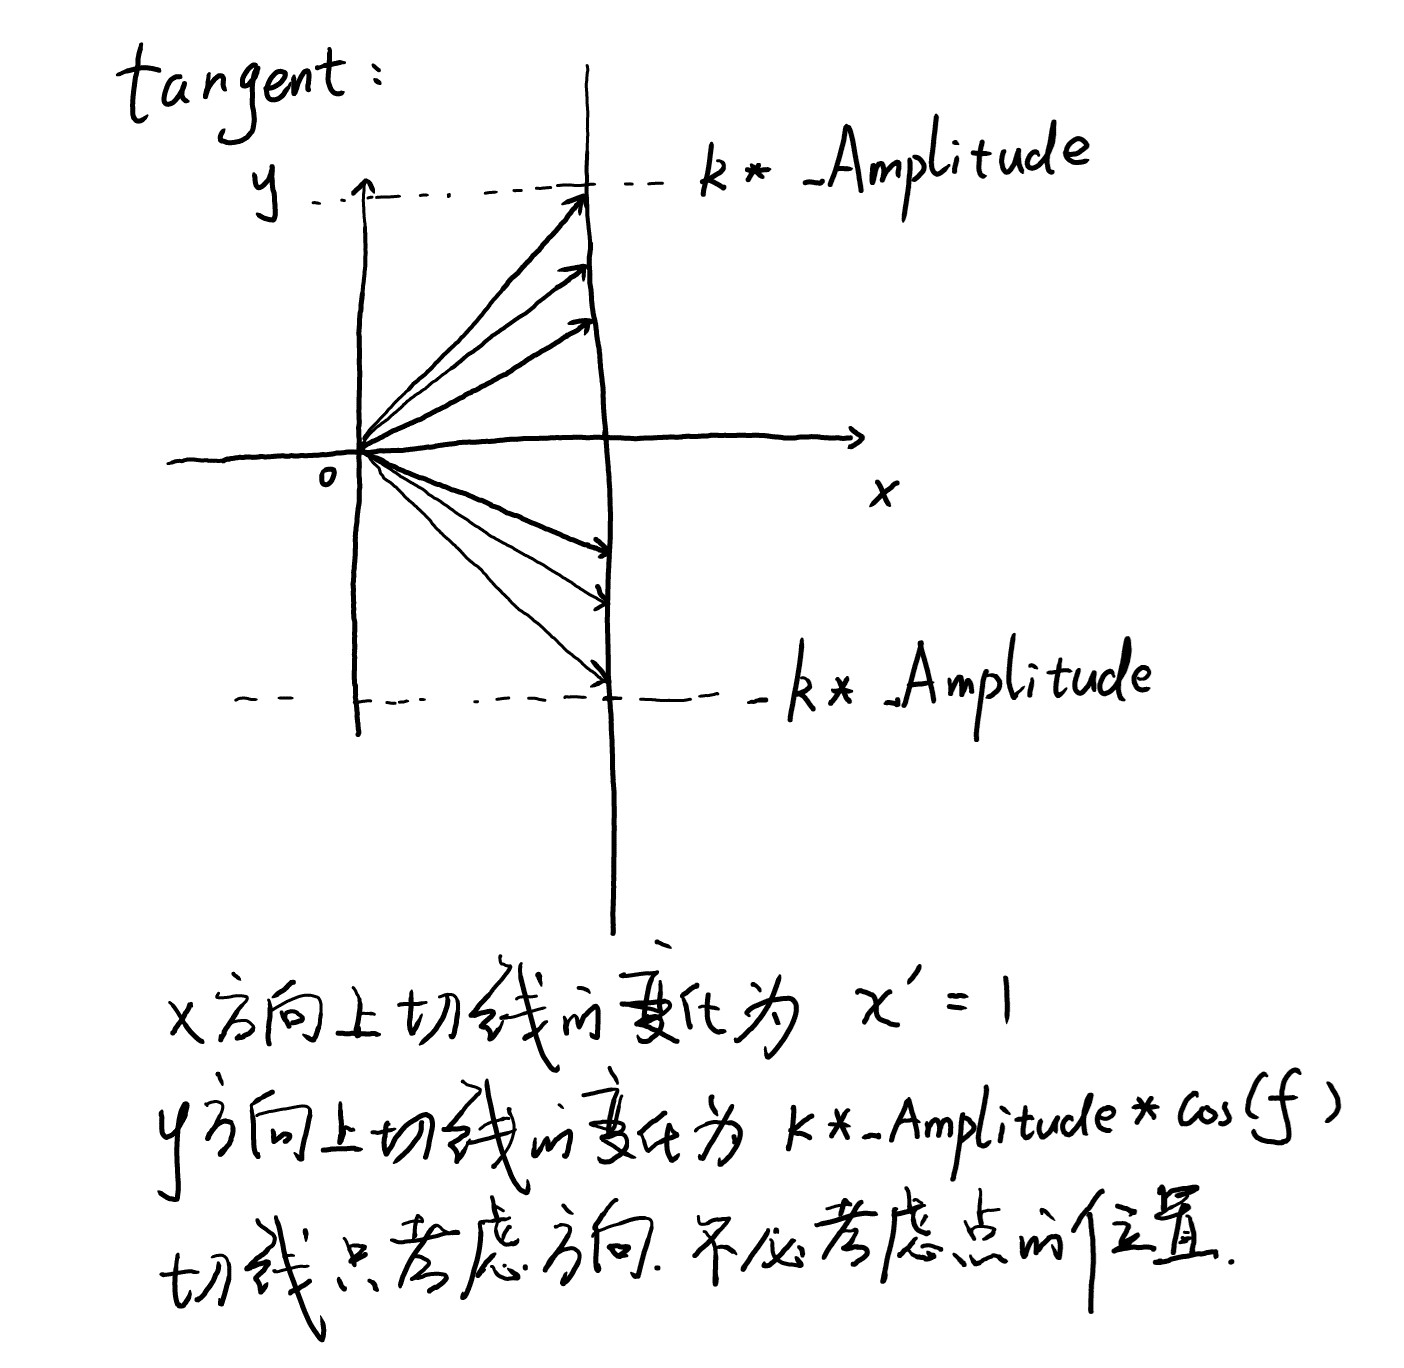 tangent:
y
k* _Amplitude
o
x
-k* _Amplitude
x方向上切线的变化为 x′=1
y方向上切线的变化为 k*_Amplitude*cos(f)
切线只考虑方向.不必考虑点的位置.